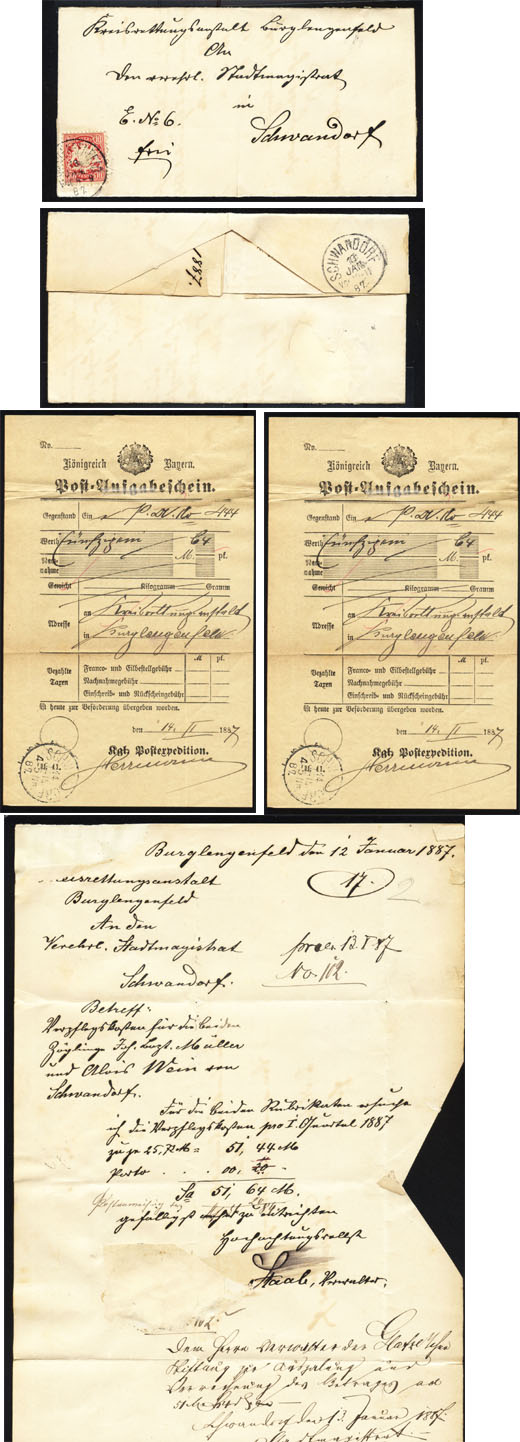 Kreisrettungsanstalt Burglengenfeld
An
den verehrl. Stadtmagistrat
in
E. No 6.
Schwandorf
frei
87
1887.
SCHWANDORF
JAN.
87
No.
Königreich Bayern.
Post-Aufgabeschein.
Gegenstand Ein P. No 444
Werth fünfzig 64
Nachnahme M. pf.
Gewicht Kilogramm Gramm
Adresse
an Kreisrettungsanstalt
in Burglengenfeld
M pf.
Bezahlte Taxen
Franco- und Eilbestellgebühr
Nachnahmegebühr
Einschreib- und Rückscheingebühr
ist heute zur Beförderung übergeben worden.
den 14. II 1887
Kgl. Postexpedition.
Herrmann
No.
Königreich Bayern.
Post-Aufgabeschein.
Gegenstand Ein P. No 444
Werth fünfzig 64
Nachnahme M. pf.
Gewicht Kilogramm Gramm
Adresse
an Kreisrettungsanstalt
in Burglengenfeld
M pf.
Bezahlte Taxen
Franco- und Eilbestellgebühr
Nachnahmegebühr
Einschreib- und Rückscheingebühr
ist heute zur Beförderung übergeben worden.
den 14. II 1887
Kgl. Postexpedition.
Herrmann
Burglengenfeld den 12 Januar 1887.
eisrettungsanstalt
17. 2
Burglengenfeld
An den
Verehrl. Stadtmagistrat
prae. 13. I 87
No. 102.
Schwandorf.
Betreff:
Verpflegskosten für die beiden
Zöglinge Joh. Bapt. Müller
und Alois Wein von
Schwandorf.
Für die beiden Rubrikaten ersuche
ich die Verpflegskosten pro I. Quartal 1887
zu je 25,72 M = 51, 44 M
Porto . . . 00, 20 .
Sa 51, 64 M.
gefälligst anher zu entrichten
Hochachtungsvollst
Staab, Verwalter.
102.
Dem Herrn Verwalter der
Stiftung zur Auszahlung und
Verrechnung des Betrages an
Schwandorf den 13. Januar 1887.
Stadtmagistrat